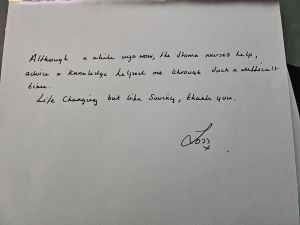 Although a while ago now, the stoma nurses help,
advice & knowledge helped me through such a difficult
time.
Life Changing but life Saving, thank you.
x